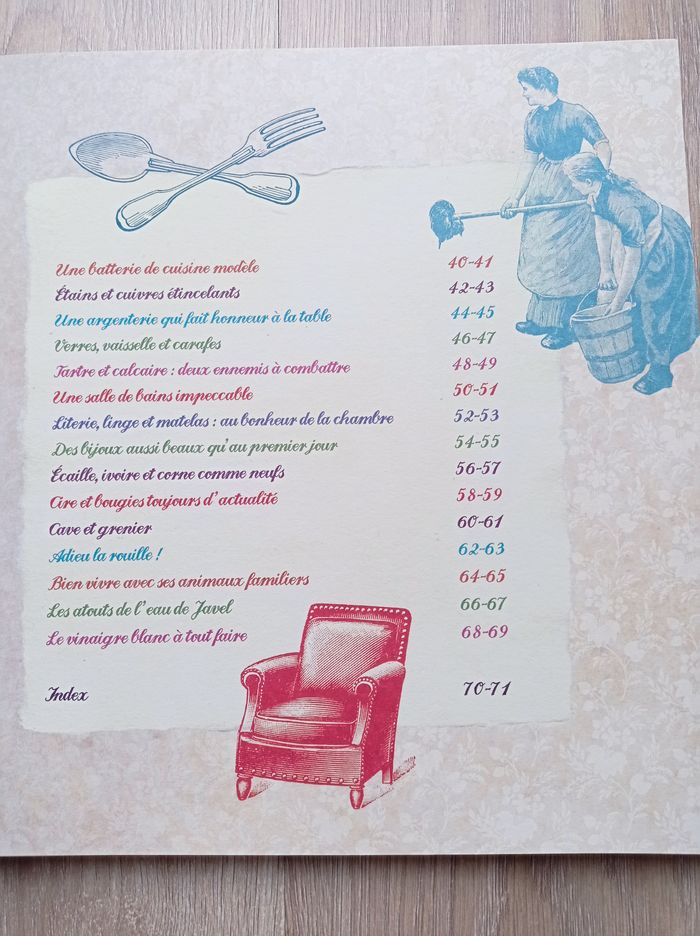 Une batterie de cuisine modèle 40-41
Étains et cuivres étincelants 42-43
Une argenterie qui fait honneur à la table 44-45
Verres, vaisselle et carafes 46-47
Tartre et calcaire : deux ennemis à combattre 48-49
Une salle de bains impeccable 50-51
Literie, linge et matelas : au bonheur de la chambre 52-53
Des bijoux aussi beaux qu'au premier jour 54-55
Écaille, ivoire et corne comme neufs 56-57
Cire et bougies toujours d'actualité 58-59
Cave et grenier 60-61
Adieu la rouille ! 62-63
Bien vivre avec ses animaux familiers 64-65
Les atouts de l'eau de Javel 66-67
Le vinaigre blanc à tout faire 68-69
Index 70-71